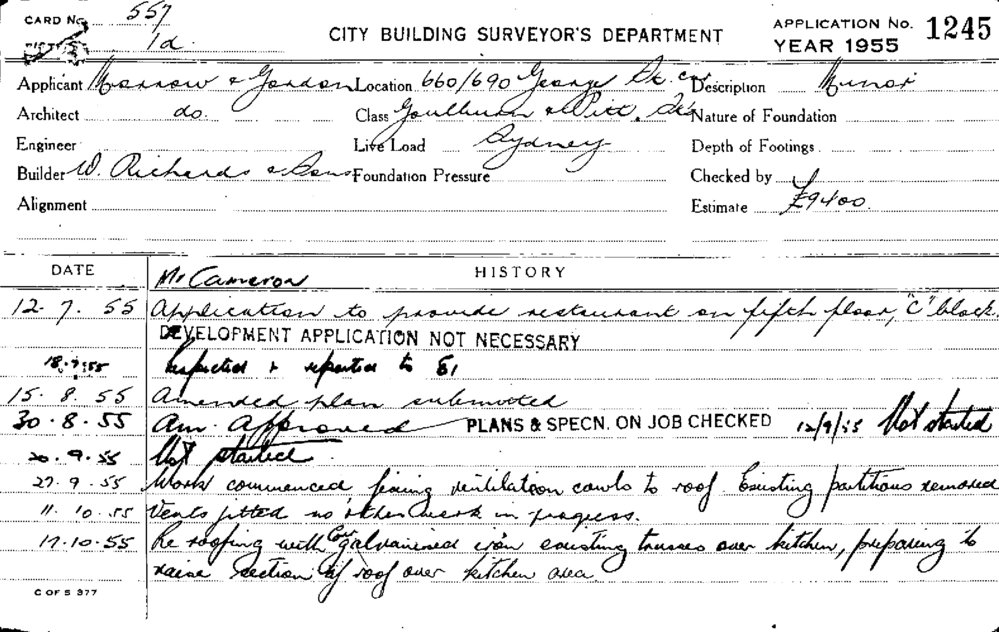 CARD No. 557
1d.
CITY BUILDING SURVEYOR'S DEPARTMENT
APPLICATION No. 1245
YEAR 1955
Applicant Morrow & Gordon Location 660/690 George St. cor Description Minor
Architect do. Class Goulburn & Pitt. Sts Nature of Foundation
Engineer Live Load Sydney Depth of Footings
Builder W. Richards & Sons Foundation Pressure Checked by
Alignment Estimate £9400.
DATE HISTORY
Mr Cameron
12. 7. 55 Application to provide restaurant on fifth floor, "C" block.
DEVELOPMENT APPLICATION NOT NECESSARY
18.7.55 Inspected & reported to
15. 8. 55 Amended plan submitted
30. 8. 55 Am. Approved PLANS & SPECN. ON JOB CHECKED 12/9/55 Not started
20. 9. 55 Not started.
27. 9. 55 Work commenced, fixing ventilation cowls to roof. Existing partitions removed
11. 10. 55 Vents fitted no other work in progress.
17.10.55 Re roofing with Cor galvanised iron existing trusses over kitchen, preparing to
raise section of roof over kitchen area
C OF S 377